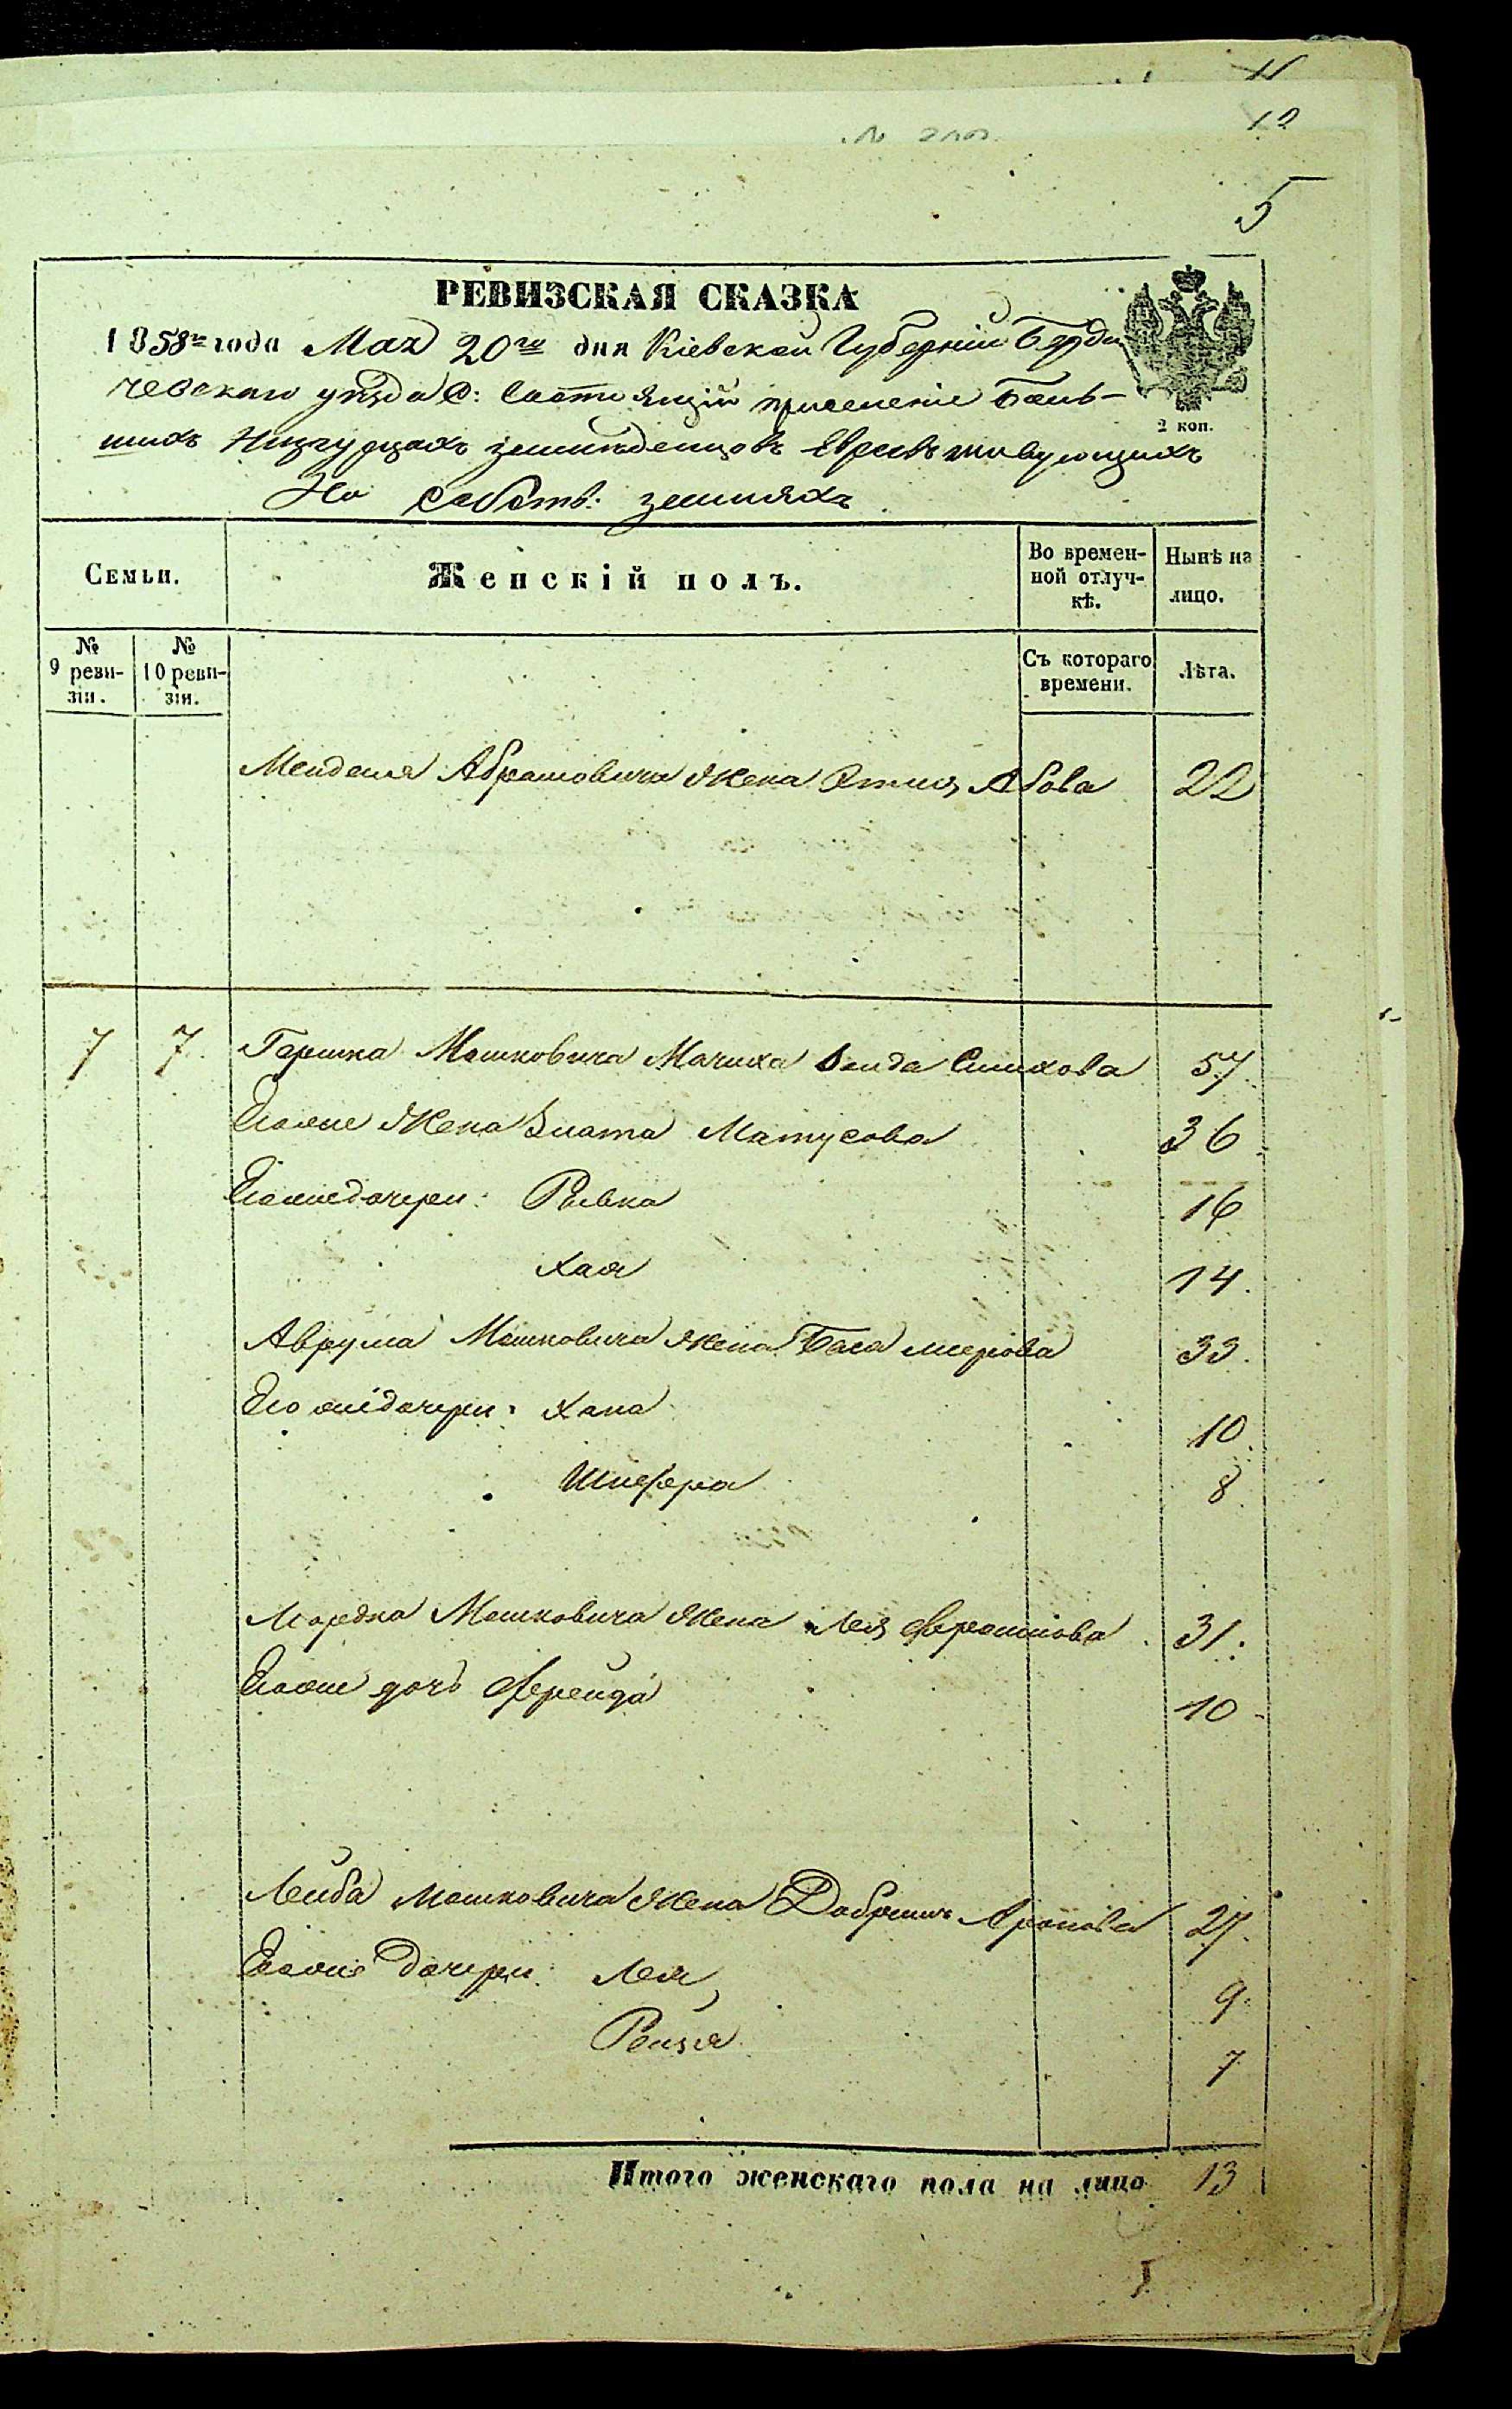 11
12
5
РЕВИЗСКАЯ СКАЗКА
1858го года Мая 20го дня Кіевской Губерніи Берди
чевскаго уѣзда С: Состоящій при селеніе Боль-
шихъ Низгурцахъ земледельцовъ Евреевъ живующихъ
На собств: земляхъ
2 коп.
Семьи.
Женскій полъ.
Во времен-
ной отлуч-
кѣ.
Нынѣ на
лицо.
№
9 реви-
зіи.
№
10 реви-
зіи.
Съ котораго
времени.
Лѣта.
Менделя Абрамовича Жена Этля Абова 22
7 7. Гершка Мошковича Мачиха Зенда Симхова 57.
Егоже Жена Злата Матусова 36
Егоже дочери: Рывка 16
Хая 14.
Аврума Мошковича Жена Бася Меерова 33.
Его же дочери: Хана 10.
Шпефра 8
Мордка Мошковича Жена Лея Фроимова 31.
Егоже дочь Фрейда 10
Лейба Мошковича Жена Добришъ Аронова 27.
Егоже Дочери: Лея 9.
Рейзя 7
Итого женскаго пола на лицо 13